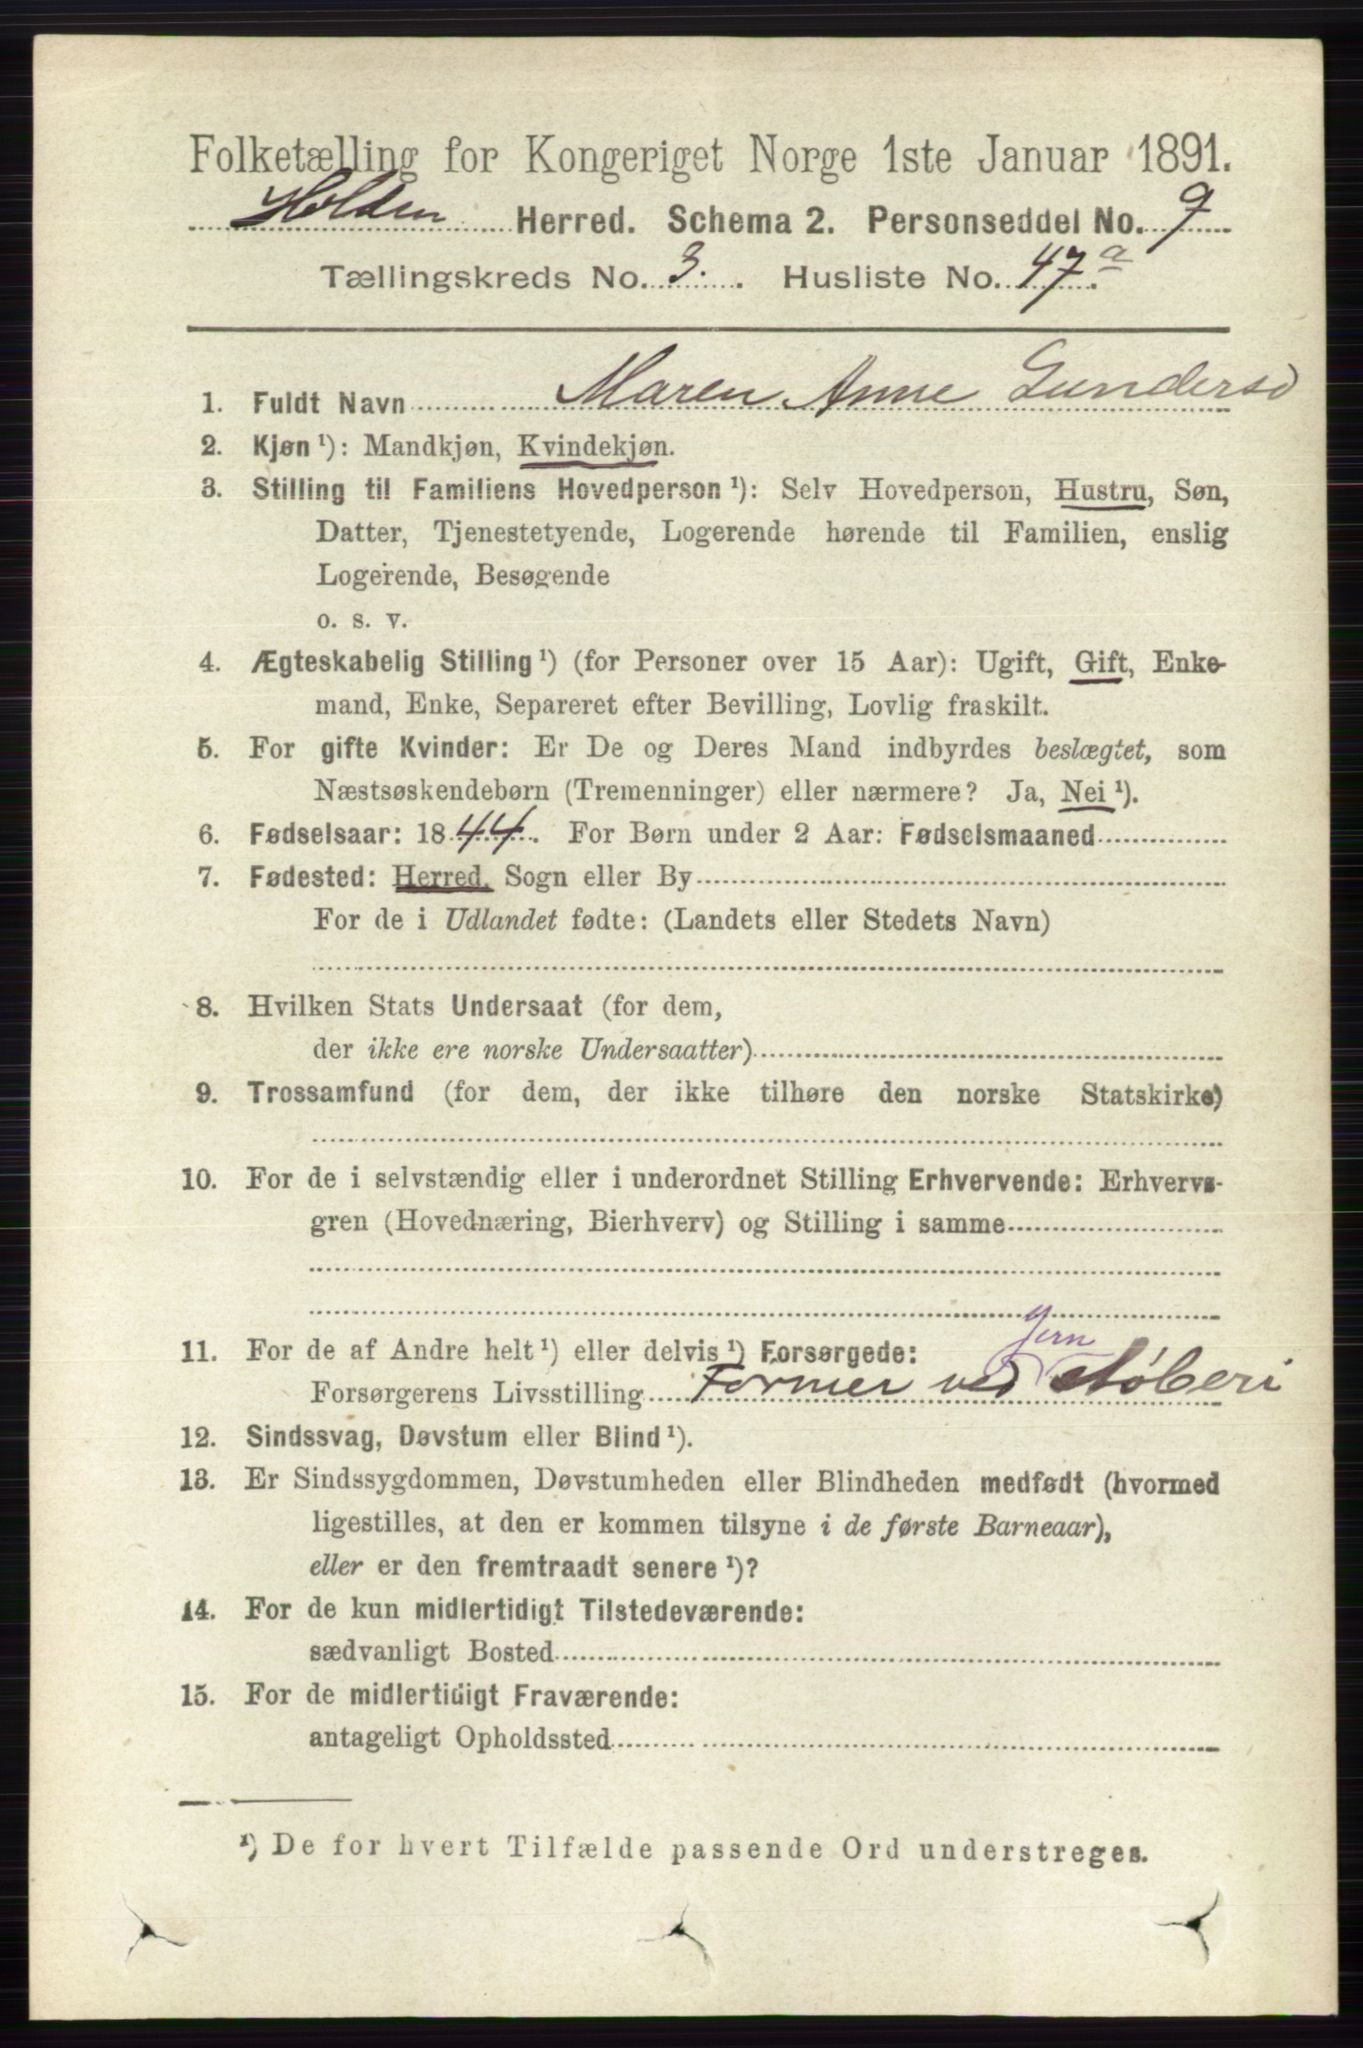 Folketælling for Kongeriget Norge 1ste Januar 1891.
Holden Herred. Schema 2. Personseddel No. 9
Tællingskreds No. 3. Husliste No. 47 a.
1. Fuldt Navn Maren Anne Gunders
2. Kjøn ¹): Mandkjøn, Kvindekjøn.
3. Stilling til Familiens Hovedperson ¹): Selv Hovedperson, Hustru, Søn,
Datter, Tjenestetyende, Logerende hørende til Familien, enslig
Logerende, Besøgende
o. s. v.
4. Ægteskabelig Stilling ¹) (for Personer over 15 Aar): Ugift, Gift, Enke-
mand, Enke, Separeret efter Bevilling, Lovlig fraskilt.
5. For gifte Kvinder: Er De og Deres Mand indbyrdes beslægtet, som
Næstsøskendebørn (Tremenninger) eller nærmere? Ja, Nei ¹).
6. Fødselsaar: 1844. For Børn under 2 Aar: Fødselsmaaned
7. Fødested: Herred, Sogn eller By
For de i Udlandet fødte: (Landets eller Stedets Navn)
8. Hvilken Stats Undersaat (for dem,
der ikke ere norske Undersaatter)
9. Trossamfund (for dem, der ikke tilhøre den norske Statskirke)
10. For de i selvstændig eller i underordnet Stilling Erhvervende: Erhvervs-
gren (Hovednæring, Bierhverv) og Stilling i samme
11. For de af Andre helt ¹) eller delvis ¹) Forsørgede:
Jern
Forsørgerens Livsstilling Former ved Støberi
12. Sindssvag, Døvstum eller Blind ¹).
13. Er Sindssygdommen, Døvstumheden eller Blindheden medfødt (hvormed
ligestilles, at den er kommen tilsyne i de første Barneaar),
eller er den fremtraadt senere ¹)?
14. For de kun midlertidigt Tilstedeværende:
sædvanligt Bosted
15. For de midlertidigt Fraværende:
antageligt Opholdssted
¹) De for hvert Tilfælde passende Ord understreges.